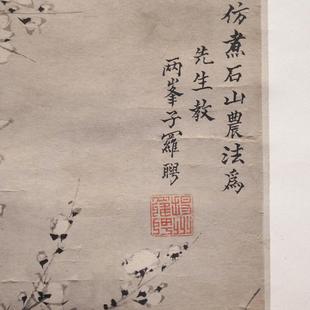 仿煮石山農法為
先生教
兩峯子羅聘